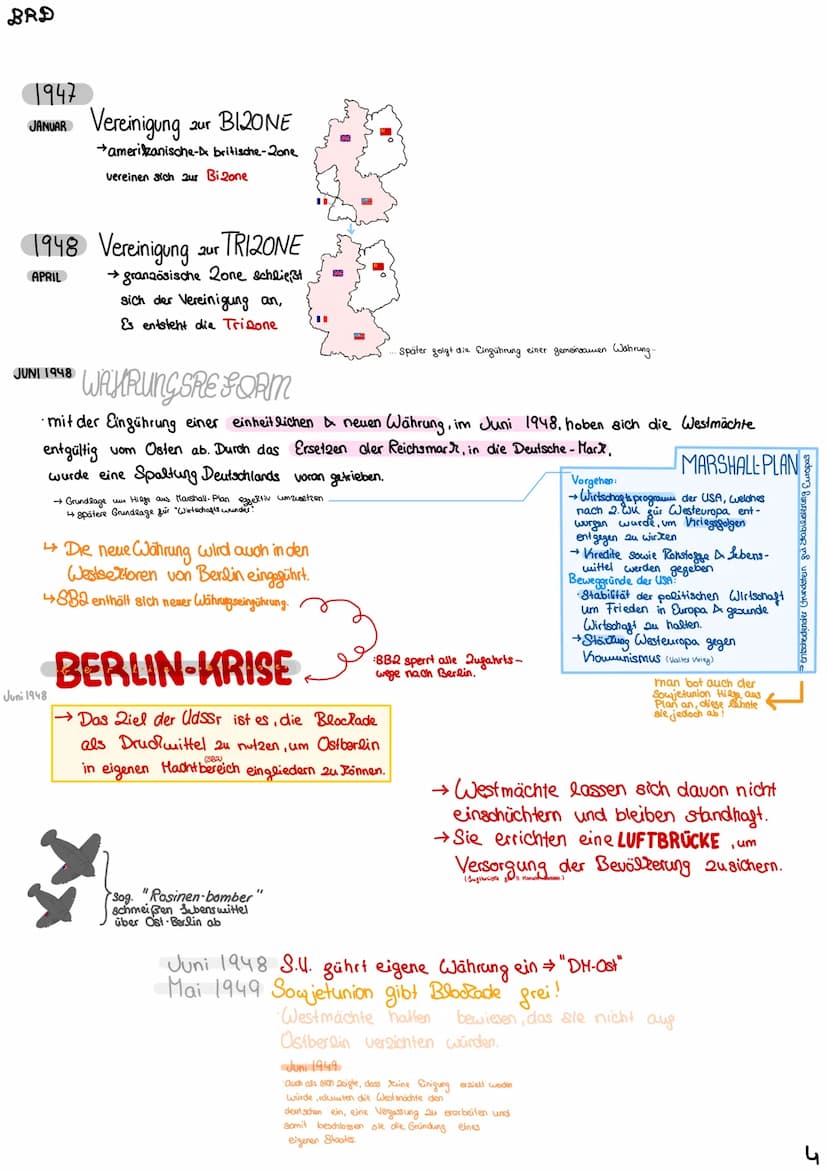 BRD
1947
JANUAR
Vereinigung zur BIZONE
→ amerikanische- & britische-Zone
vereinen sich zur Bizone
1948
APRIL
Vereinigung zur TRIZONE
→ französische Zone schließt
sich der Vereinigung an,
Es entsteht die Trizone
... später folgt die Einführung einer gemeinsamen Währung..
JUNI 1948
WÄHRUNGSREFORM
· mit der Einführung einer einheitlichen & neuen Währung, im Juni 1948, hoben sich die Westmächte
entgültig vom Osten ab. Durch das Ersetzen der Reichsmark, in die Deutsche-Mark,
wurde eine Spaltung Deutschlands voran getrieben.
→ Grundlage um Hilfe aus Marshall-Plan effektiv umzusetzen
↳ spätere Grundlage für "Wirtschaftswunder"
↳ Die neue Währung wird auch in den
Westsektoren von Berlin eingeführt.
↳ SBZ enthält sich neuer Währungseinführung.
MARSHALL-PLAN
Vorgehen:
→ Wirtschaftsprogramm der USA, welches
nach 2.WK für Westeuropa ent-
worfen wurde, um Kriegsfolgen
entgegen zu wirken
→ Kredite sowie Rohstoffe & Lebens-
mittel werden gegeben
Beweggründe der USA:
· Stabilität der politischen Wirtschaft
um Frieden in Europa & gesunde
Wirtschaft zu halten.
→ Stärkung Westeuropa gegen
Kommunismus (Kalter Krieg)
→ entscheidender Grundstein für Stabilisierung Europas
man bot auch der
Sowjetunion Hilfe aus
Plan an, diese lehnte
sie jedoch ab!
BERLIN-KRISE
Juni 1948
· SBZ sperrt alle Zufahrts-
wege nach Berlin.
→ Das Ziel der UdSSr ist es, die Blockade
als Druckmittel zu nutzen, um Ostberlin
in eigenen Machtbereich eingliedern zu können.
(SBZ)
→ Westmächte lassen sich davon nicht
einschüchtern und bleiben standhaft.
→ Sie errichten eine LUFTBRÜCKE, um
Versorgung der Bevölkerung zu sichern.
sog. "Rosinen-bomber"
schmeißen Lebensmittel
über Ost-Berlin ab
Juni 1948 S.U. führt eigene Währung ein ⇒ "DM-Ost"
Mai 1949 Sowjetunion gibt Blockade frei!
· Westmächte hatten bewiesen, das sie nicht auf
Ostberlin verzichten würden.
Juni 1949
· Auch als sich zeigte, dass keine Einigung erzielt werden
würde, räumten die Westmächte den
deutschen ein, eine Verfassung zu erarbeiten und
somit beschlossen sie die Gründung eines
eigenen Staates.
4